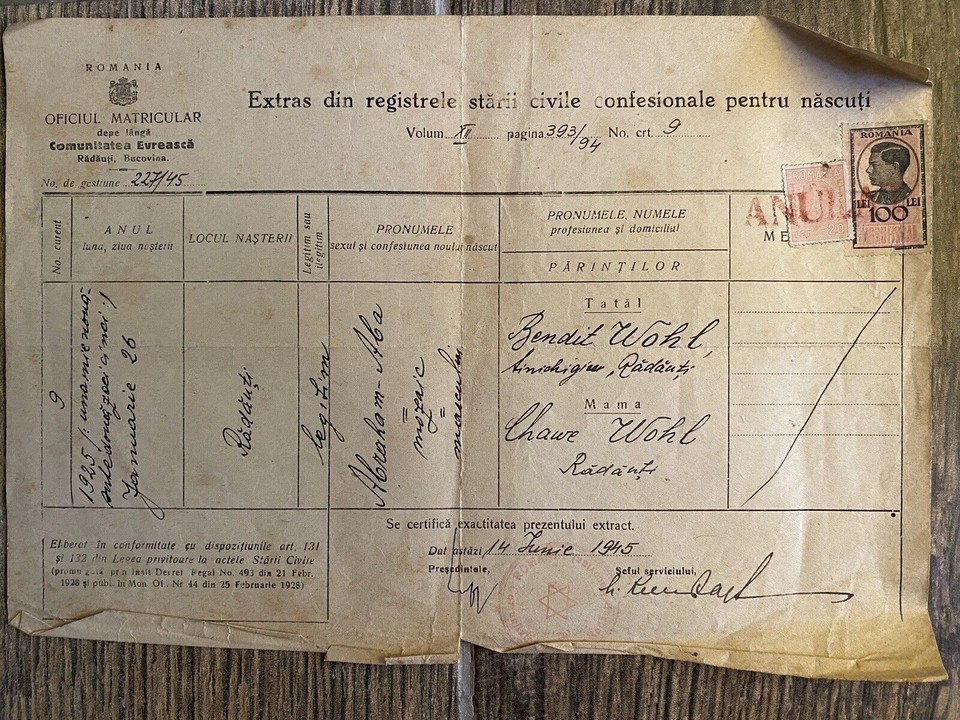 ROMANIA
OFICIUL MATRICULAR
depe lângă
Comunitatea Evrească
Rădăuți, Bucovina.
No. de gestiune 227/45
Extras din registrele stării civile confesionale pentru născuți
Volum XII pagina 393/94 No. crt. 9
ROMANIA
LEI 100 LEI
ANUL
No. curent
ANUL
luna, ziua nașterii
LOCUL NAȘTERII
Legitim sau
ilegitim
PRONUMELE
sexul și confesiunea noului născut
PRONUMELE, NUMELE
profesiunea și domiciliul
PĂRINȚILOR
ME
9
1925 /: una mie nouă
sute două zeci cinci :/
Januarie 26
Rădăuți
legitim
Abraham-Aba
mozaic
masculin
Tatăl
Bendit Wohl,
tinichigiu, Rădăuți
Mama
Chawe Wohl
Rădăuți
Se certifică exactitatea prezentului extract.
Dat astăzi 14 Iunie 1945
Președintele,
Șeful serviciului,
Eliberat în conformitate cu dispozițiunile art. 131
și 132 din Legea privitoare la actele Stării Civile
(promulgată prin Inalt Decret Regal No. 493 din 21 Febr.
1928 și publ. în Mon Of. Nr 44 din 25 Februarie 1928)